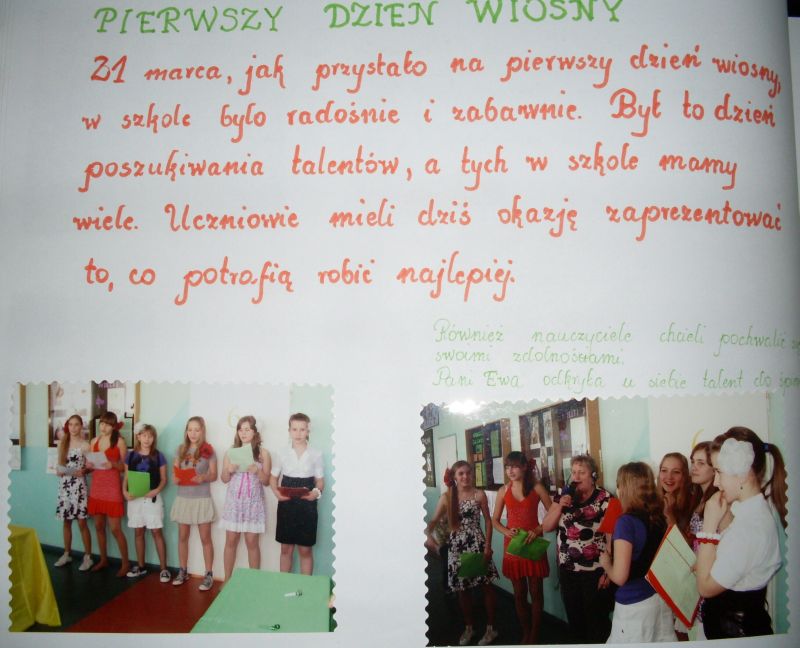 PIERWSZY DZIEŃ WIOSNY
21 marca, jak przystało na pierwszy dzień wiosny,
w szkole było radośnie i zabawnie. Był to dzień
poszukiwania talentów, a tych w szkole mamy
wiele. Uczniowie mieli dziś okazję zaprezentować
to, co potrafią robić najlepiej.
Również nauczyciele chcieli pochwalić
swoimi zdolnościami.
Pani Ewa odkryła u siebie talent do